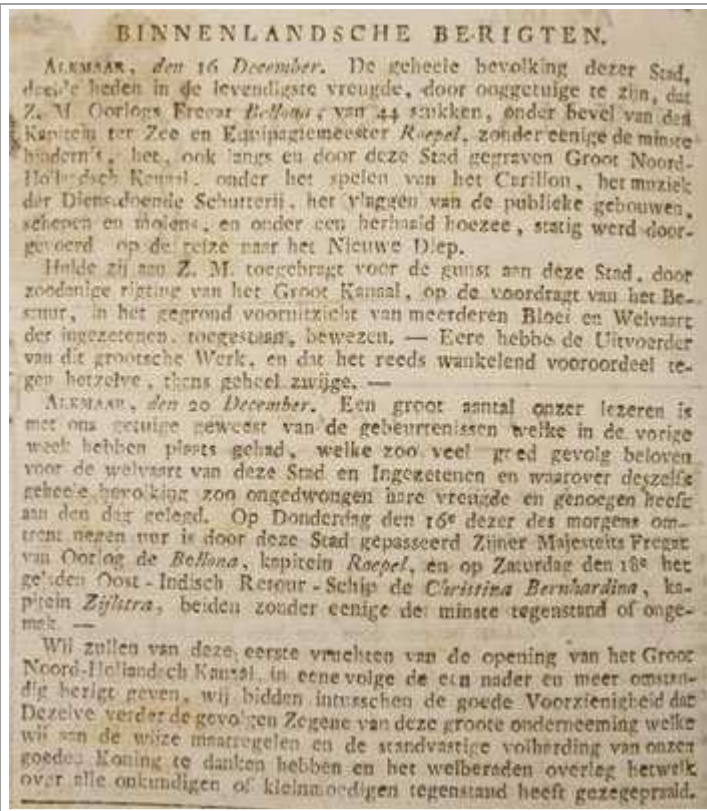 BINNENLANDSCHE BERIGTEN.
ALKMAAR, den 16 December. De geheele bevolking dezer Stad,
deelde heden in de levendigste vreugde, door ooggetuige te zijn, dat
Z. M. Oorlogs Fregat Bellona, van 44 stukken, onder bevel van den
Kapitein ter Zee en Equipagiemeester Roepel, zonder eenige de minste
hindernis, het, ook langs en door deze Stad gegraven Groot Noord-
Hollandsch Kanaal, onder het spelen van het Carillon, het muziek
der Dienstdoende Schutterij, het vlaggen van de publieke gebouwen,
schepen en molens, en onder een herhaald hoezee, statig werd door-
gevoerd op de reize naar het Nieuwe Diep.
Hulde zij aan Z. M. toegebragt voor de gunst aan deze Stad, door
zoodanige rigting van het Groot Kanaal, op de voordragt van het Be-
stuur, in het gegrond vooruitzicht van meerderen Bloei en Welvaart
der ingezetenen, toegestaan, bewezen. — Eere hebbe de Uitvoerder
van dit grootsche Werk, en dat het reeds wankelend vooroordeel te-
gen hetzelve, thens geheel zwijge. —
ALKMAAR, den 20 December. Een groot aantal onzer lezeren is
met ons getuige geweest van de gebeurtenissen welke in de vorige
week hebben plaats gehad, welke zoo veel goed gevolg beloven
voor de welvaart van deze Stad en Ingezetenen en waarover deszelfs
geheele bevolking zoo ongedwongen hare vreugde en genoegen heeft
aan den dag gelegd. Op Donderdag den 16e dezer des morgens om-
trent negen uur is door deze Stad gepasseerd Zijner Majesteits Fregat
van Oorlog de Bellona, kapitein Roepel, en op Zaturdag den 18e het
geladen Oost-Indisch Retour-Schip de Christina Bernhardina, ka-
pitein Zijlstra, beiden zonder eenige de minste tegenstand of onge-
mak. —
Wij zullen van deze eerste vruchten van de opening van het Groot
Noord-Hollandsch Kanaal, in eene volgende een nader en meer omstan-
dig berigt geven, wij bidden intusschen de goede Voorzienigheid dat
Dezelve verder de gevolgen Zegene van deze groote onderneeming welke
wij aan de wijze maatregelen en de standvastige volharding van onzen
goeden Koning te danken hebben en het welberaden overleg hetwelk
over alle onkundigen of kleinmoedigen tegenstand heeft gezegepraald.